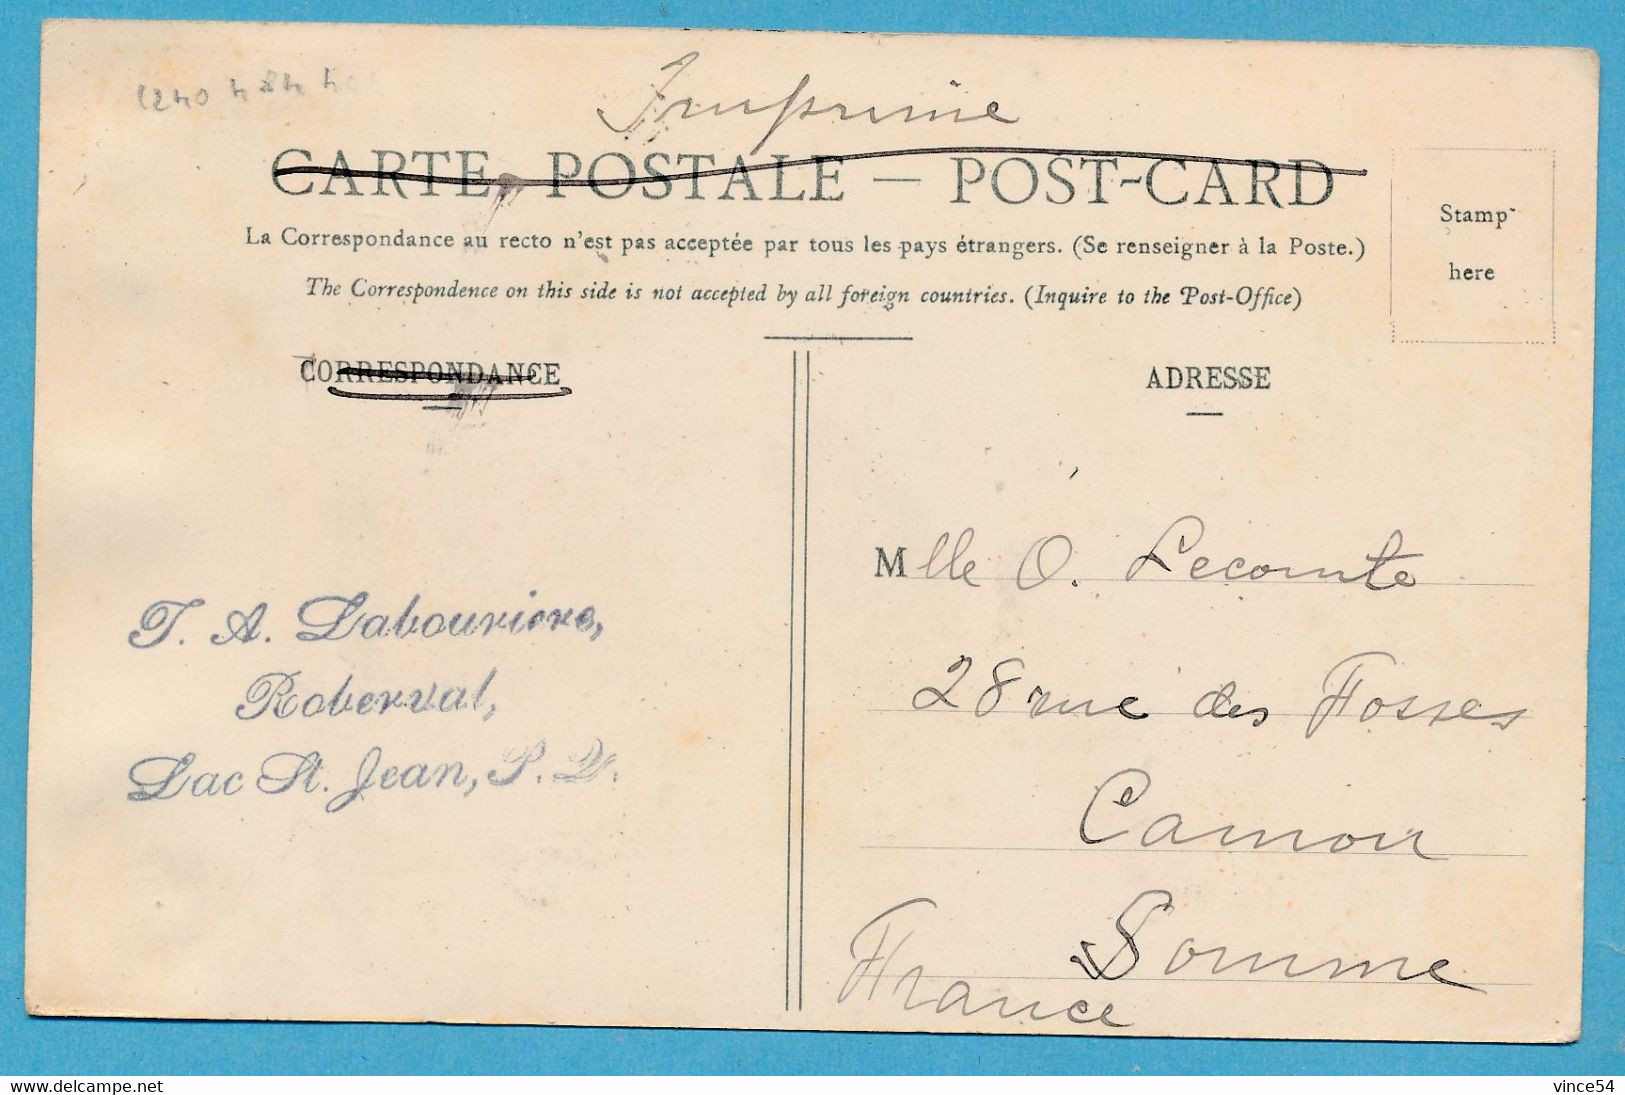 Imprimé
CARTE POSTALE — POST-CARD
La Correspondance au recto n'est pas acceptée par tous les pays étrangers. (Se renseigner à la Poste.)
The Correspondence on this side is not accepted by all foreign countries. (Inquire to the Post-Office)
Stamp
here
CORRESPONDANCE
ADRESSE
T. A. Labouriere,
Roberval,
Lac St. Jean, P. Q.
Mlle O. Lecomte
28 rue des Fosses
Camon
Somme
France
vince54